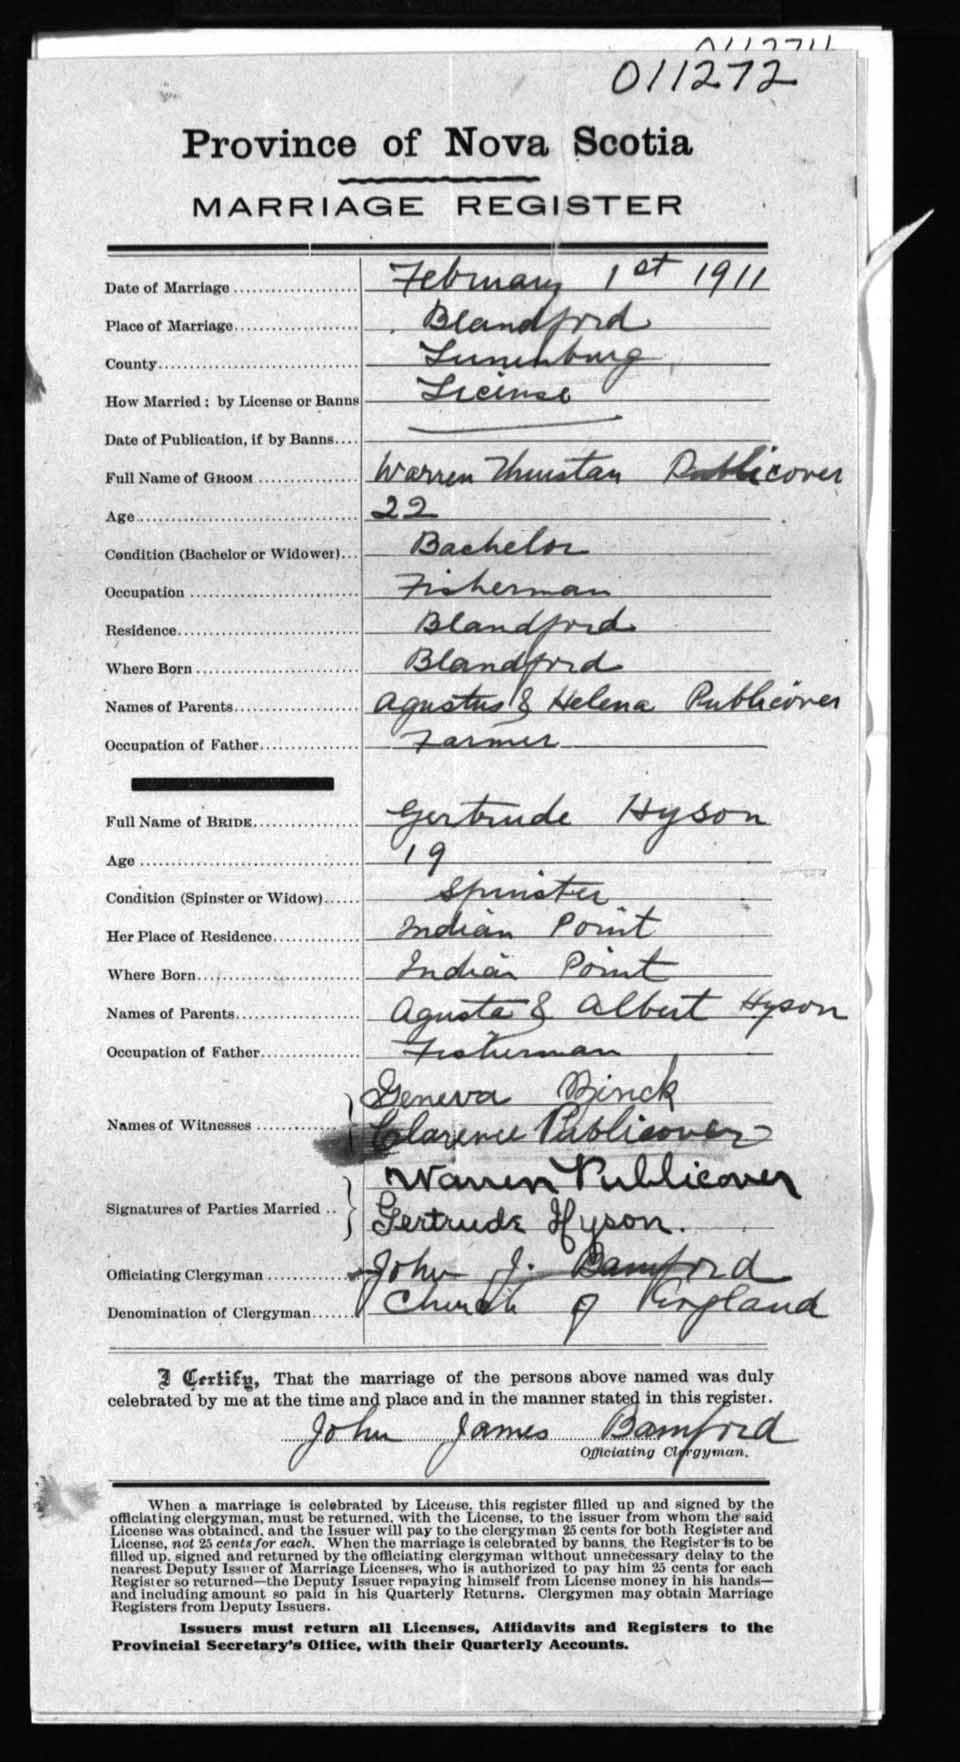 011272
Province of Nova Scotia
MARRIAGE REGISTER
Date of Marriage February 1st 1911
Place of Marriage Blandford
County Lunenburg
How Married: by License or Banns License
Date of Publication, if by Banns
Full Name of GROOM Warren Thurstan Publicover
Age 22
Condition (Bachelor or Widower) Bachelor
Occupation Fisherman
Residence Blandford
Where Born Blandford
Names of Parents Agustus & Helena Publicover
Occupation of Father Farmer
Full Name of BRIDE Gertrude Hyson
Age 19
Condition (Spinster or Widow) Spinster
Her Place of Residence Indian Point
Where Born Indian Point
Names of Parents Agusta & Albert Hyson
Occupation of Father Fisherman
Names of Witnesses Geneva
Clarence Publicover
Signatures of Parties Married Warren Publicover
Gertrude Hyson.
Officiating Clergyman John J. Bamford
Denomination of Clergyman Church of England
I Certify, That the marriage of the persons above named was duly
celebrated by me at the time and place and in the manner stated in this register.
John James Bamford
Officiating Clergyman.
When a marriage is celebrated by License, this register filled up and signed by the
officiating clergyman, must be returned, with the License, to the issuer from whom the said
License was obtained, and the Issuer will pay to the clergyman 25 cents for both Register and
License, not 25 cents for each. When the marriage is celebrated by banns, the Register is to be
filled up, signed and returned by the officiating clergyman without unnecessary delay to the
nearest Deputy Issuer of Marriage Licenses, who is authorized to pay him 25 cents for each
Register so returned—the Deputy Issuer repaying himself from License money in his hands—
and including amount so paid in his Quarterly Returns. Clergymen may obtain Marriage
Registers from Deputy Issuers.
Issuers must return all Licenses, Affidavits and Registers to the
Provincial Secretary's Office, with their Quarterly Accounts.